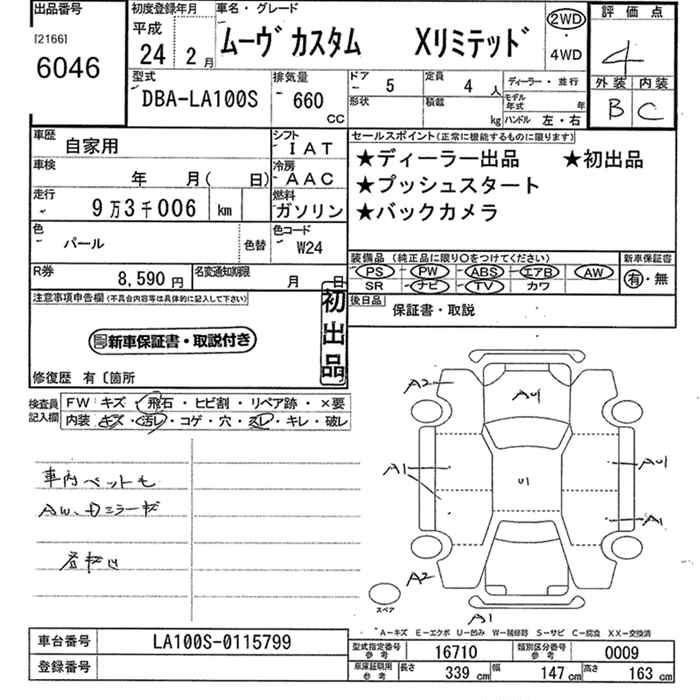 出品番号
[2166]
6046
初度登録年月
平成
24年 2月
車名・グレード
ムーヴ カスタム Xリミテッド
2WD
・
4WD
評価点
4
外装 内装
B C
型式
DBA-LA100S
排気量
660 CC
ドア 5
定員 4人
ディーラー・並行
形状
積載 kg
モデル年式 年
ハンドル 左・右
車歴 自家用
シフト IAT
車検 年 月( 日)
冷房 AAC
走行 9万3千006 km
燃料 ガソリン
色 パール 色替
色コード W24
R券 8,590円
名変通知期限 月 日
セールスポイント(正常に機能するものに限ります)
★ディーラー出品 ★初出品
★プッシュスタート
★バックカメラ
装備品 (純正品に限り○をつけてください)
PS PW ABS エアB AW
SR ナビ TV カワ
新車保証書
有・無
後日品
保証書・取説
注意事項申告欄(不具合内容等は具体的に記入して下さい)
新車保証書・取説付き
初出品
修復歴 有〔箇所
検査員記入欄
FW キズ・飛石・ヒビ割・リペア跡・×要
内装 キズ・汚レ・コゲ・穴・スレ・キレ・破レ
車内ペットも
AW、Dミラーキズ
A2
AU1
A1
U1
AU1
A1
A2
A1
スペア
A−キズ E−エクボ U−凹み W−補修跡 S−サビ C−腐食 XX−交換済
車台番号 LA100S-0115799
登録番号
型式指定番号 参考 16710
類別区分番号 参考 0009
車庫証明用 参考 長さ 339 cm 幅 147 cm 高さ 163 cm